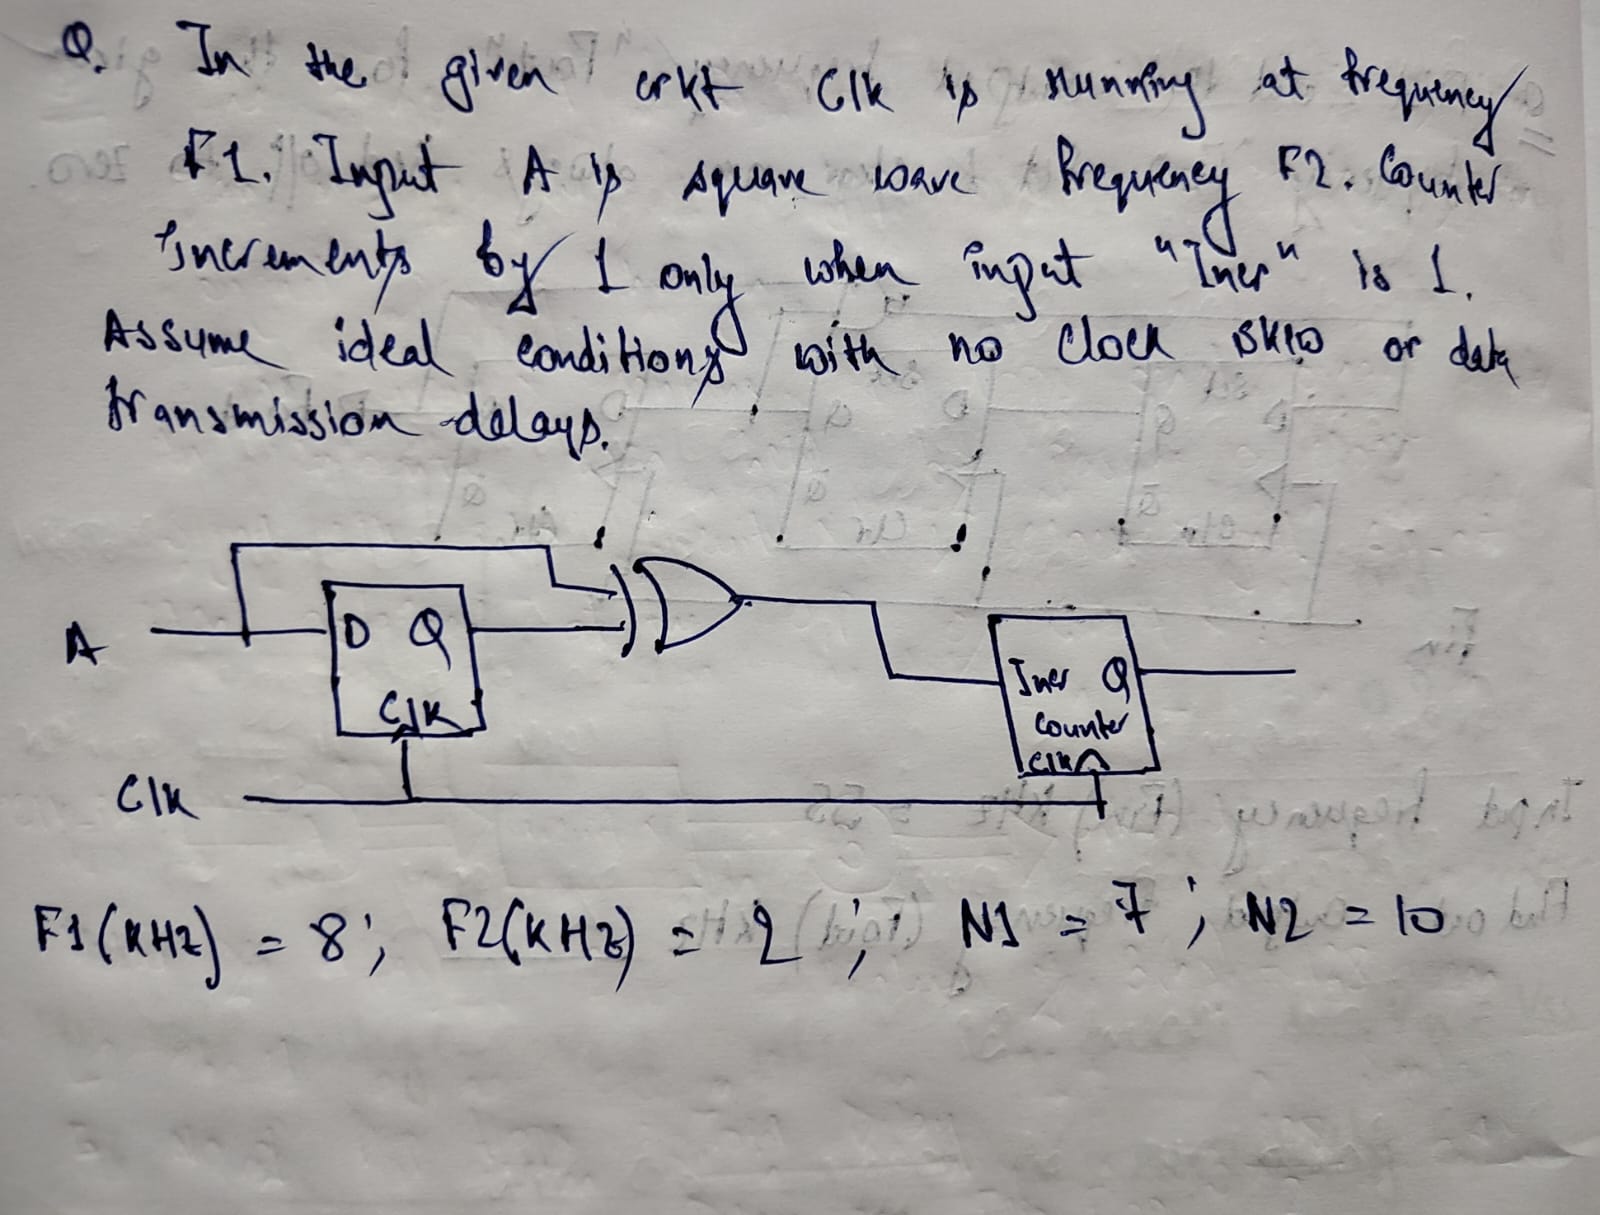 Q. In the given crkt Clk is running at frequency
F1. Input A is square wave frequency F2. Counter
increments by 1 only when input "Incr" is 1.
Assume ideal conditions with no clock skew or data
transmission delays.
A
D Q
Clk
Incr Q
Counter
Clk
Clk
F1(KHz) = 8; F2(KHz) = 2; N1 = 7; N2 = 10